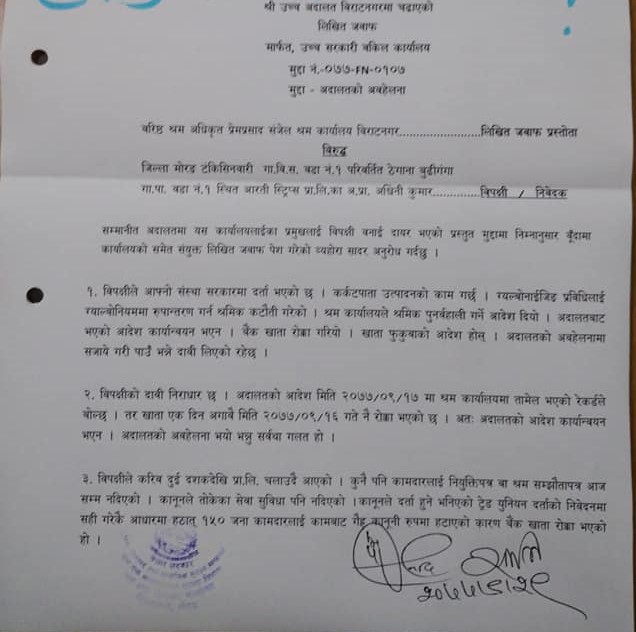 श्री उच्च अदालत विराटनगरमा चढाएको
लिखित जवाफ
मार्फत, उच्च सरकारी वकिल कार्यालय
मुद्दा नं.-०७७-FN-०१०७
मुद्दा - अदालतको अवहेलना
वरिष्ठ श्रम अधिकृत प्रेमप्रसाद संजेल श्रम कार्यालय विराटनगर.......................लिखित जवाफ प्रस्तोता
विरुद्ध
जिल्ला मोरङ टंकिसिनवारी गा.वि.स. वडा नं.१ परिवर्तित ठेगाना बुढीगंगा
गा.पा. वडा नं.१ स्थित आरती स्ट्रिप्स प्रा.लि.का अ.प्रा. अश्विनी कुमार.............विपक्षी / निवेदक
सम्मानीत अदालतमा यस कार्यालयलाईका प्रमुखलाई विपक्षी वनाई दायर भएको प्रस्तुत मुद्दामा निम्नानुसार बूँदामा
कार्यालयको समेत संयुक्त लिखित जवाफ पेश गरेको व्यहोरा सादर अनुरोध गर्दछु ।
१. विपक्षीले आफ्नो संस्था सरकारमा दर्ता भएको छ । कर्कटपाता उत्पादनको काम गर्छ । ग्यल्बोनाईजिङ प्रविधिलाई
ग्याल्बोनियममा रुपान्तरण गर्न श्रमिक कटौती गरेको । श्रम कार्यालयले श्रमिक पुनर्वहाली गर्ने आदेश दियो । अदालतबाट
भएको आदेश कार्यान्वयन भएन । बैंक खाता रोक्का गरियो । खाता फुकुवाको आदेश होस् । अदालतको अवहेलनामा
सजाये गरी पाउँ भन्ने दावी लिएको रहेछ ।
२. विपक्षीको दावी निराधार छ । अदालतको आदेश मिति २०७७/०९/१७ मा श्रम कार्यालयमा तामेल भएको रेकर्डले
बोल्छ । तर खाता एक दिन अगावै मिति २०७७/०९/१६ गते नै रोक्का भएको छ । अतः अदालतको आदेश कार्यान्वयन
भएन । अदालतको अवहेलना भयो भन्नु सर्वथा गलत हो ।
३. विपक्षीले करिव दुई दशकदेखि प्रा.लि. चलाउदै आएको । कुनै पनि कामदारलाई नियुक्तिपत्र वा श्रम सम्झौतापत्र आज
सम्म नदिएको । कानूनले तोकेका सेवा सुविधा पनि नदिएको ।कानूनले दर्ता हुने भनिएको ट्रेड युनियन दर्ताको निवेदनमा
सही गरेकै आधारमा हठात् १५० जना कामदारलाई कामबाट गैह्र कानूनी रुपमा हटाएको कारण बैंक खाता रोक्का भएको
हो ।